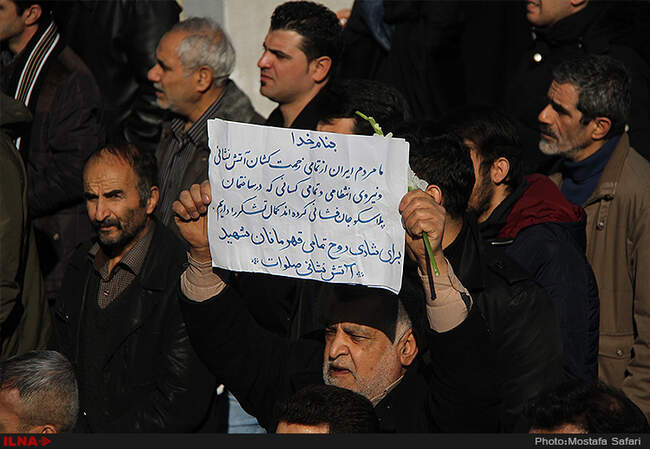 بنام خدا
ما مردم ایران از تمامی زحمت کشان آتش نشانی
و نیروی انتظامی و تمامی کسانی که در ساختمان
پلاسکو جان فشانی کرده اند کمال تشکر را داریم
برای شادی روح تمامی قهرمانان شهید
آتش نشانی صلوات
ILNA
Photo:Mostafa Safari